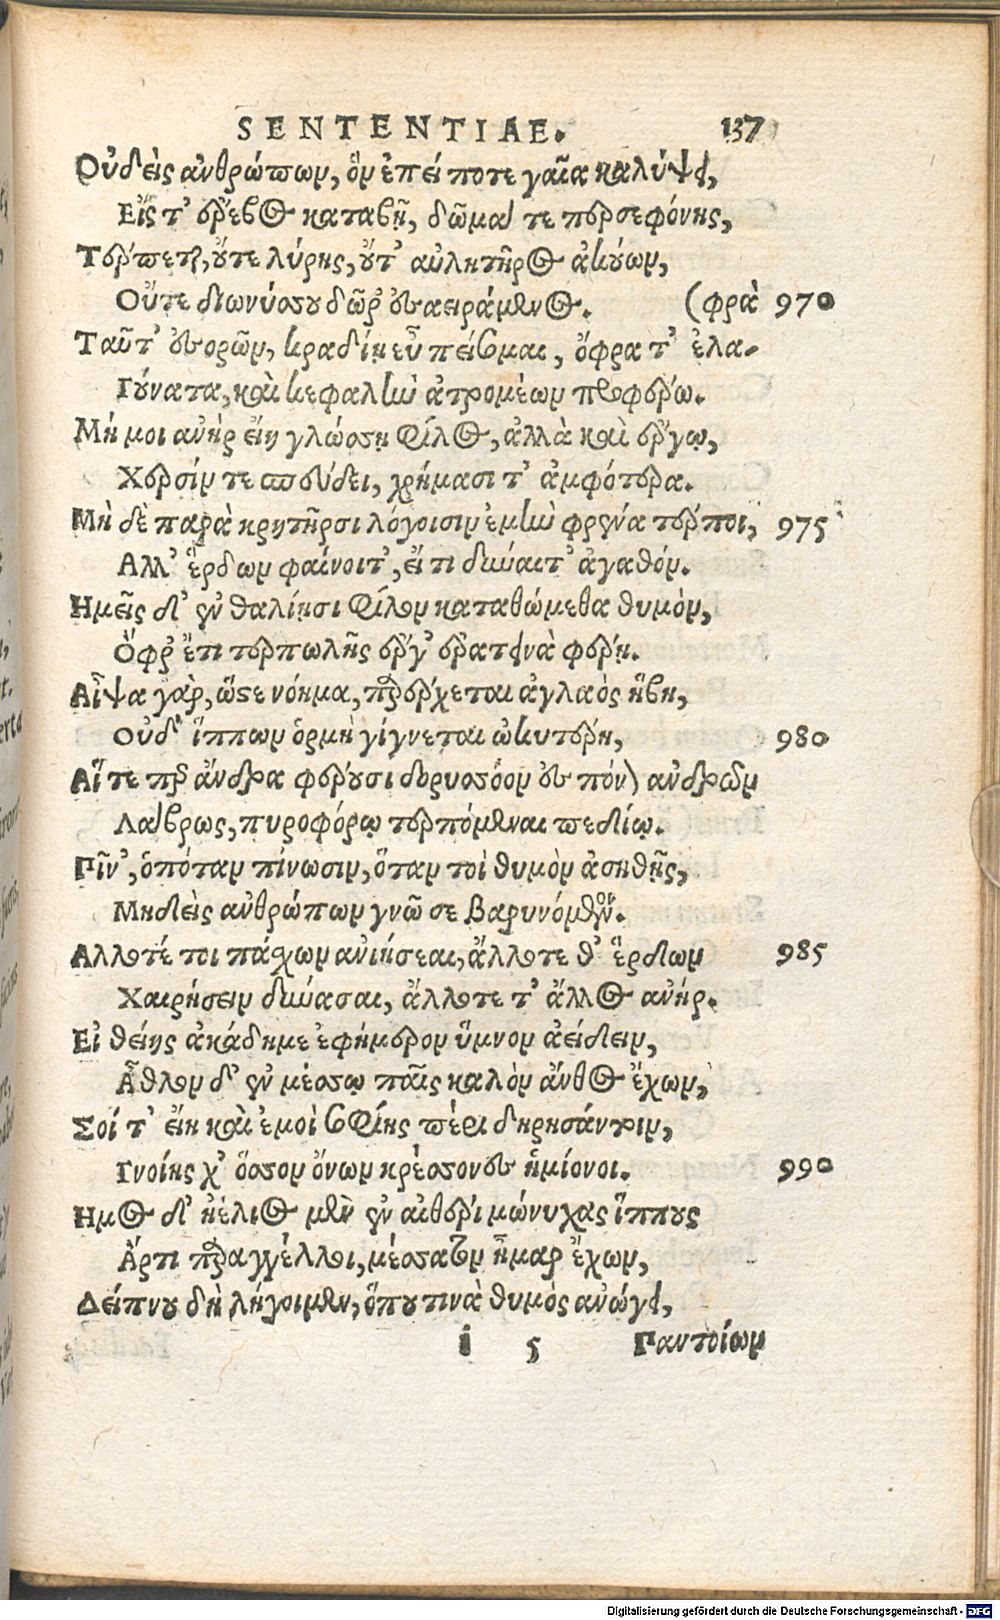 SENTENTIAE. 137
Οὐδεὶς ἀνθρώπων, ὃν ἐπεί ποτε γαῖα καλύψει,
Εἴς τ' ἔρεβος καταβῇ, δῶμά τε περσεφόνης,
Τέρπεται, οὔτε λύρης, οὔτ' αὐλητῆρος ἀκούων,
Οὔτε διωνύσου δῶρ' ἐσαειράμενος. (φρὰ 970
Ταῦτ' ἐσορῶν, κραδίην εὖ πείσομαι, ὄφρα τ' ἐλα-
Γούνατα, καὶ κεφαλὴν ἀτρομέων προφέρω.
Μή μοι ἀνὴρ εἴη γλώσσῃ φίλος, ἀλλὰ καὶ ἔργῳ,
Χερσίν τε σπεύδει, χρήμασι τ' ἀμφότερα.
Μὴ δὲ παρὰ κρητῆρσι λόγοισιν ἐμὴν φρένα τέρποι, 975
Αλλ' ἔρδων φαίνοιτ', εἴ τι δύναιτ' ἀγαθόν.
Ημεῖς δ' ἐν θαλίῃσι φίλον καταθώμεθα θυμὸν,
Ὄφρ' ἔτι τερπωλῆς ἔργ' ἐρατεινὰ φέρῃ.
Αἶψα γὰρ, ὥστε νόημα, παρέρχεται ἀγλαὸς ἥβη,
Οὐδ' ἵππων ὁρμὴ γίγνεται ὠκυτέρη, 980
Αἵ τε περ ἄνδρα φέρουσι δορυσσόον ἐς πόνον ἀνδρῶν
Λάβρως, πυροφόρῳ τερπόμεναι πεδίῳ.
Πῖν', ὁπόταν πίνωσιν, ὅταν τοὶ θυμὸν ἀσηθῇς,
Μηδεὶς ἀνθρώπων γνῶ σε βαρυνόμενον.
Αλλοτέ τοι πάσχων ἀνιήσεαι, ἄλλοτε θ' ἔρδων 985
Χαιρήσειν δύνασαι, ἄλλοτε τ' ἄλλος ἀνήρ.
Εἰ θείης ἀκάδημε ἐφήμερον ὕμνον ἀείδειν,
Ἆθλον δ' ἐν μέσσῳ παῖς καλὸν ἄνθος ἔχων,
Σοί τ' εἴη καὶ ἐμοὶ σοφίης πέρι δηρησάντοιν,
Γνοίης χ' ὅσσον ὄνων κρέσσονες ἡμίονοι. 990
Ημος δ' ἠέλιος μὲν ἐν αἰθέρι μώνυχας ἵππους
Ἄρτι παραγγέλλοι, μέσσατον ἦμαρ ἔχων,
Δείπνου δὴ λήγοιμεν, ὅπου τινὰ θυμὸς ἀνώγει,
i 5 Παντοίων
Digitalisierung gefördert durch die Deutsche Forschungsgemeinschaft - DFG